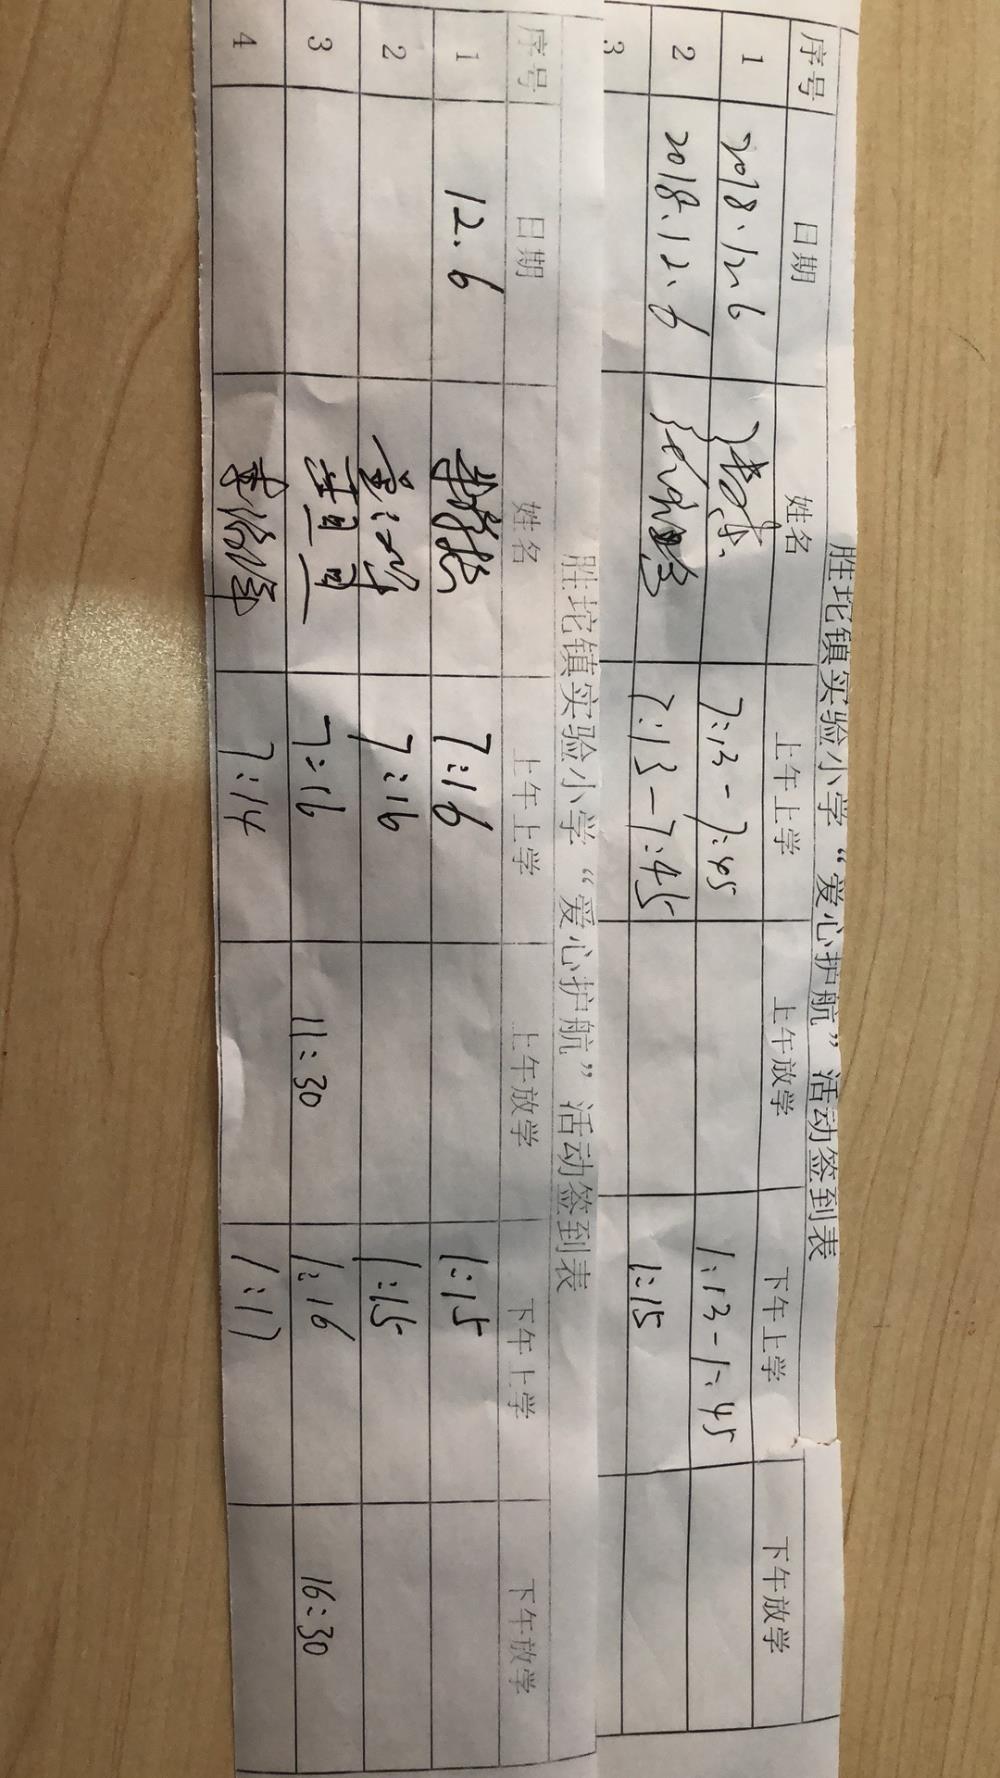 胜坨镇实验小学“爱心护航”活动签到表
序号 日期 姓名 上午上学 上午放学 下午上学 下午放学
1 2018.12.6 7:13-7:45 1:13-1:45
2 2018.12.6 7:13-7:45 1:15
3
胜坨镇实验小学“爱心护航”活动签到表
序号 日期 姓名 上午上学 上午放学 下午上学 下午放学
1 12.6 7:16 1:15
2 7:16 1:15
3 7:16 11:30 1:16 16:30
4 7:14 1:17